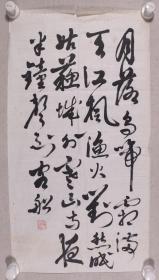 月落乌啼霜满
天江枫渔火对愁眠
姑苏城外寒山寺夜
半钟声到客船